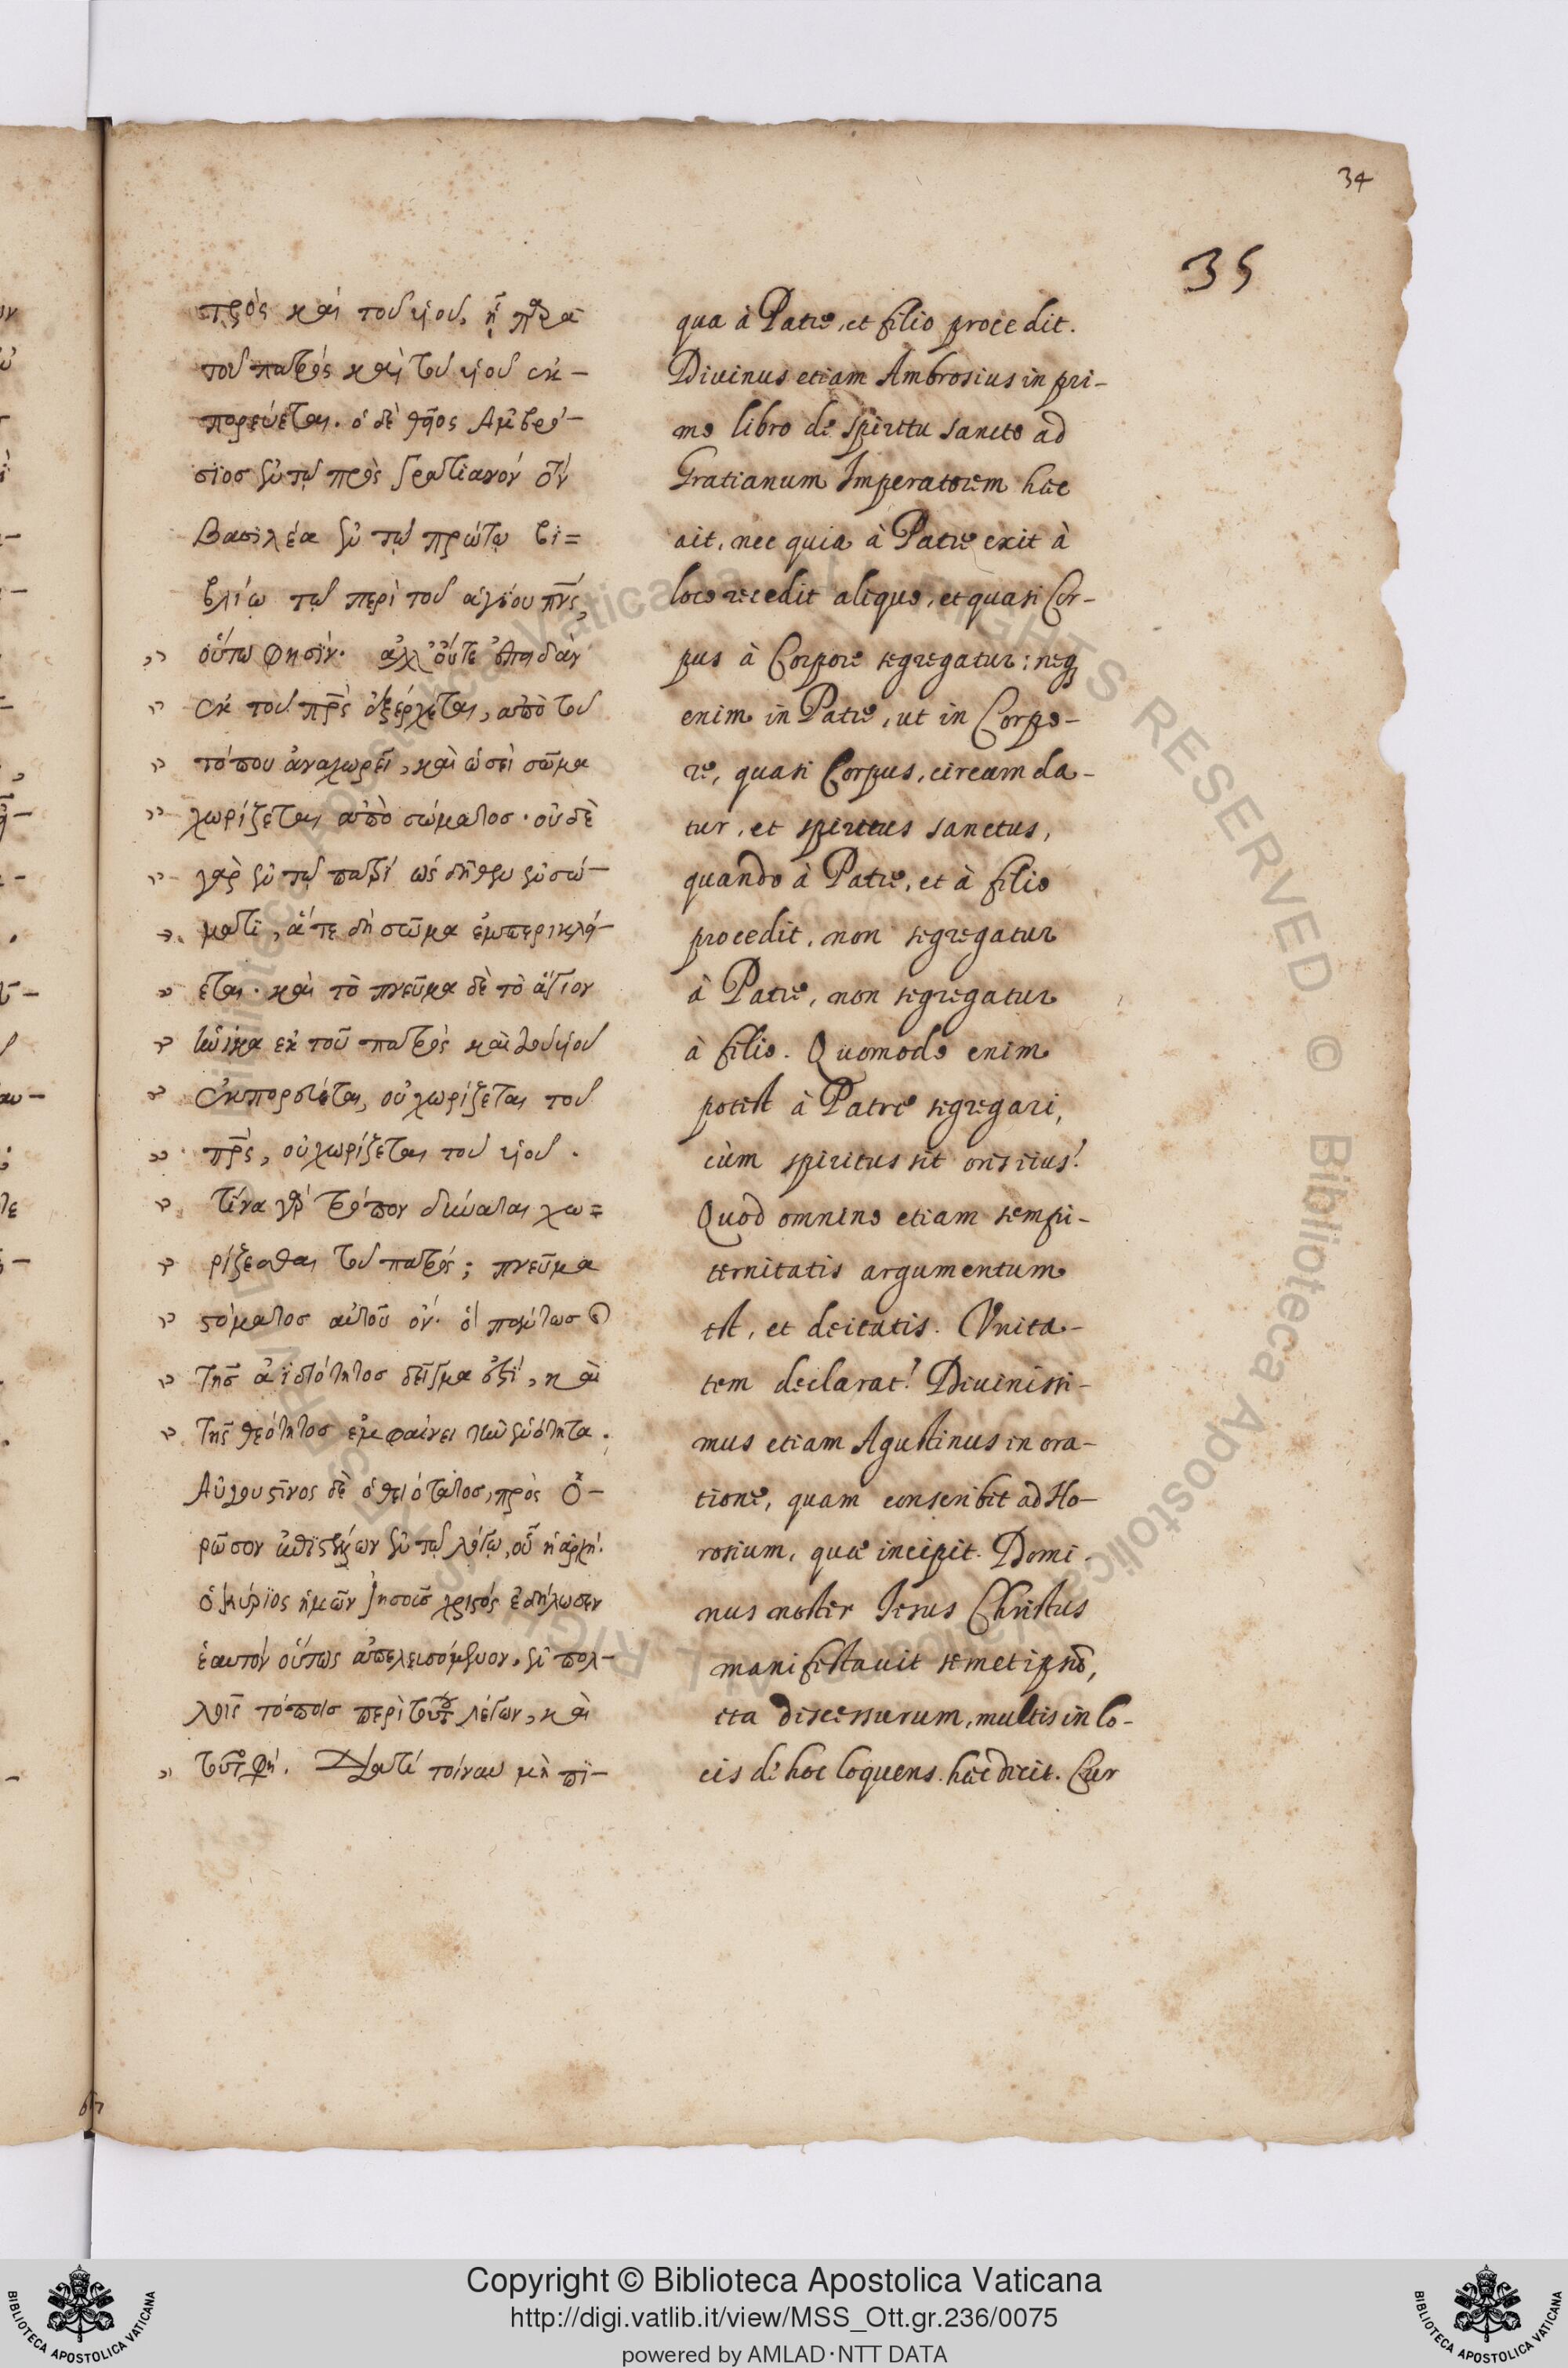 34
35
πρὸς καὶ τοῦ υἱοῦ, ἢ παρὰ
τοῦ πατρός καὶ τοῦ υἱοῦ ἐκ-
πορεύεται. ὁ δὲ θεῖος Ἀμβρό-
σϊος ἐν τῷ πρὸς Γρατιανόν τὸν
Βασιλέα ἐν τῷ πρώτῳ βι=
βλίῳ τῷ περὶ τοῦ ἁγίου πνς,
οὕτω φησίν. ἀλλ' οὔτε ἐπειδὰν
ἐκ τοῦ πρς ἐξέρχεται, ἀπὸ τοῦ
τόπου ἀναχωρεῖ, καὶ ὡσεὶ σῶμα
χωρίζεται ἀπὸ σώματος. οὐδὲ
γὰρ ἐν τῷ πατρί ὡς δῆθεν ἐν σώ-
ματι, ἅτε δὴ σῶμα ἐμπερικλεί-
εται. καὶ τὸ πνεῦμα δὲ τὸ ἅγιον
ἡνίκα ἐκ τοῦ πατρὸς καὶ τοῦ υἱοῦ
ἐκπορεύεται, οὐ χωρίζεται τοῦ
πρς, οὐ χωρίζεται τοῦ υἱοῦ.
τίνα γὰρ τρόπον δύναται χω=
ρίζεσθαι τοῦ πατρός; πνεῦμα
στόματος αὐτοῦ ὄν.
τῆς ἀϊδιότητος δεῖγμα ἐστί, καὶ
τῆς θεότητος ἐμφαίνει τὴν ἑνότητα.
Αὐγουστῖνος δὲ ὁ θειότατος, πρὸς Ὀ-
ρῶσον ἐν τῷ λόγῳ, οὗ ἡ ἀρχή.
ὁ κύριος ἡμῶν Ἰησοῦς χριστός ἐδήλωσεν
ἑαυτόν οὕτως ἀπελευσόμενον, ἐν πολ-
λοῖς τόποις περὶ τούτου λέγων, καὶ
τοῦτο φη. Διατί τοίνυν μὴ πι-
qua à Patre, et filio procedit.
Diuinus etiam Ambrosius in pri-
mo libro de spiritu sancto ad
Gratianum Imperatorem hæc
ait, nec quia à Patre exit à
loco recedit aliquo, et quasi Cor-
pus à Corpore segregatur: neq
enim in Patre, ut in Corpo-
re, quasi Corpus, circumda-
tur, et spiritus sanctus,
quando à Patre, et à filio
procedit, non segregatur
à Patre, non segregatur
à filio. Quomodo enim
potest à Patre segregari,
cùm spiritus sit oris eius?
Quod omnino etiam sempi-
ternitatis argumentum
est, et deitatis. Vnita-
tem declarat? Diuinissi-
mus etiam Agustinus in ora-
tione, quam conscribit ad Ho-
rosium, quæ incipit. Domi-
nus noster Iesus Christus
manifestauit semetipsũ,
ita discessurum, multis in lo-
cis de hoc loquens. hæc dicit. Cur
Copyright © Biblioteca Apostolica Vaticana
http://digi.vatlib.it/view/MSS_Ott.gr.236/0075
powered by AMLAD·NTT DATA